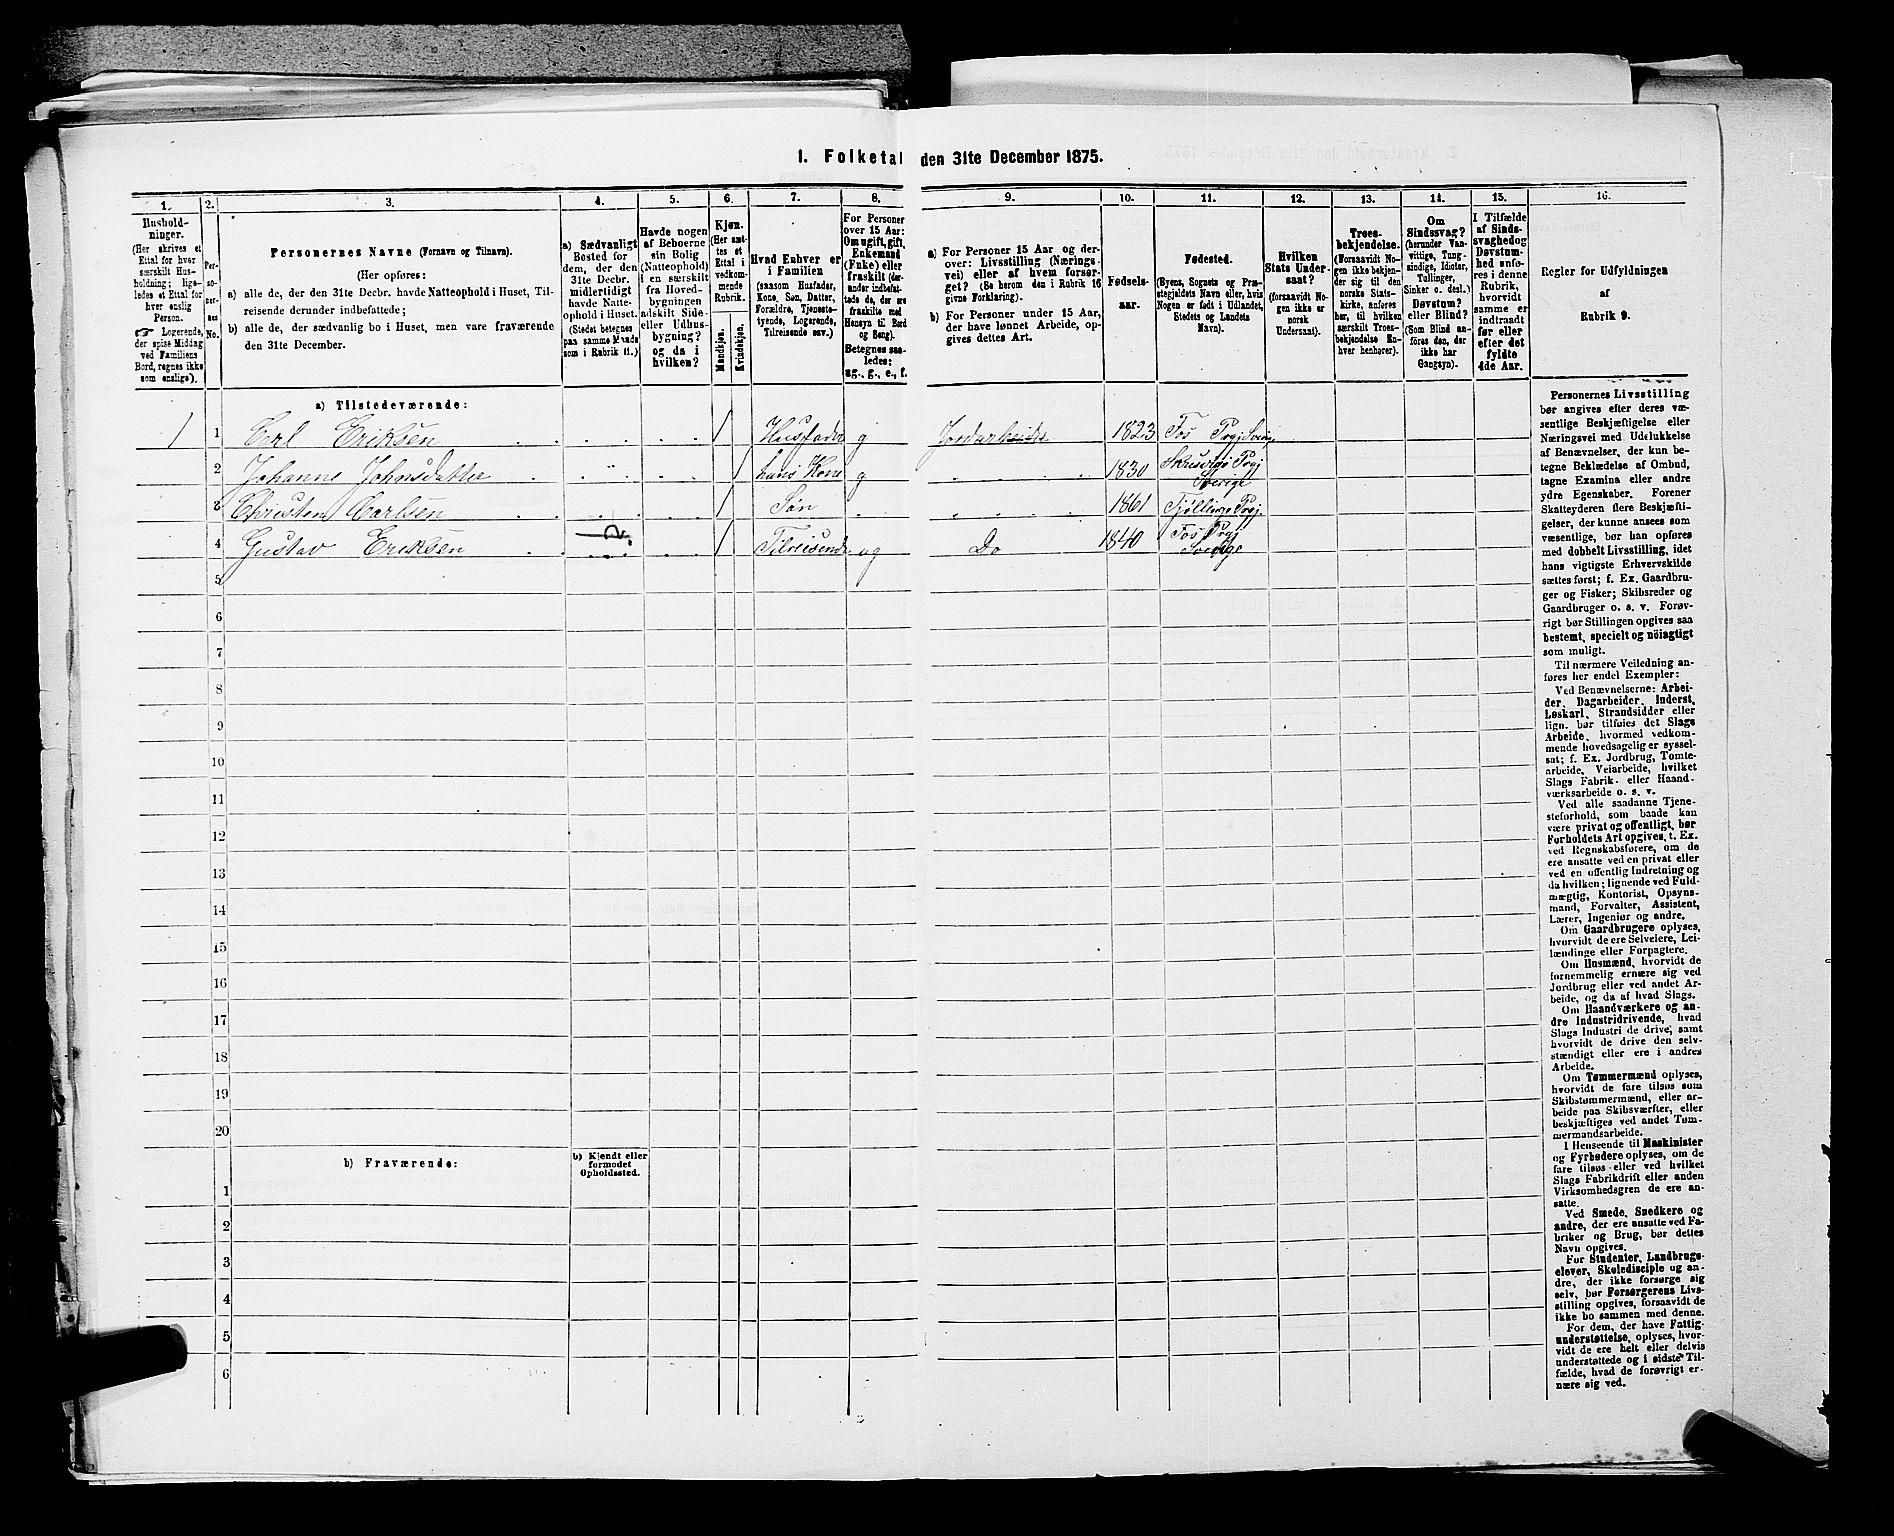 1. Folketal den 31te December 1875.
1. 2. 3. 4. 5. 6. 7. 8. 9. 10. 11. 12. 13. 14. 15. 16.
Hushold-
ninger.
(Her skrives et
Ettal for hver
særskilt Hus-
holdning; lige-
ledes et Ettal for
hver enslig
Person.
☞ Logerende,
der spise Middag
ved Familiens
Bord, regnes ikke
som enslige).
Per-
so-
ner-
nes
No.
Personernes Navne (Fornavn og Tilnavn).
(Her opføres:
a) alle de, der den 31te Decbr. havde Natteophold i Huset, Til-
reisende derunder indbefattede;
b) alle de, der sædvanlig bo i Huset, men vare fraværende
den 31te December.
a) Sædvanligt
Bosted for
dem, der den
31te Decbr.
midlertidigt
havde Natte-
ophold i Huset.
(Stedet betegnes
paa samme Maade
som i Rubrik 11.)
Havde nogen
af Beboerne
sin Bolig
(Natteophold)
i en særskilt
fra Hoved-
bygningen
adskilt Side-
eller Udhus-
bygning?
og da i
hvilken?
Kjøn.
(Her sæt-
tes et
Ettal i
vedkom-
mende
Rubrik.
Mandkjøn.
Kvindekjøn.
Hvad Enhver er
i Familien
(saasom Husfader,
Kone, Søn, Datter,
Forældre, Tjeneste-
tyende, Logerende,
Tilreisende osv.)
For Personer
over 15 Aar:
Om ugift, gift,
Enkemand
(Enke) eller
fraskilt (der-
under indbefat-
tede de, der ere
fraskilte med
Hensyn til Bord
og Seng).
Betegnes saa-
ledes:
ug., g., e., f.
a) For Personer 15 Aar og der-
over: Livsstilling (Nærings-
vei) eller af hvem forsør-
get? (Se herom den i Rubrik 16
givne Forklaring).
b) For Personer under 15 Aar,
der have lønnet Arbeide, op-
gives dettes Art.
Fødsels-
aar.
Fødested.
(Byens, Sognets og Præ-
stegjeldets Navn eller, hvis
Nogen er født i Udlandet,
Stedets og Landets
Navn).
Hvilken
Stats Under-
saat?
(forsaavidt No-
gen ikke er
norsk
Undersaat).
Troes-
bekjendelse.
(Forsaavidt No-
gen ikke bekjen-
der sig til den
norske Stats-
kirke, anføres
her, til hvilken
særskilt Troes-
bekjendelse En-
hver henhører).
Om
Sindssvag?
(herunder Van-
vittige, Tung-
sindige, Idioter,
Tullinger,
Sinker o. desl.)
Døvstum?
eller Blind?
(Som Blind an-
føres den, der
ikke har
Gangsyn).
I Tilfælde
af Sinds-
svaghed og
Døvstum-
hed anfø-
res i denne
Rubrik,
hvorvidt
samme er
indtraadt
før eller
efter det
fyldte
4de Aar.
Regler for Udfyldningen
af
Rubrik 9.
a) Tilstedeværende:
1 1 Carl Eriksen 1 Husfader g Jordarbeide 1823 Fos Prgj Sverig
2 Johanne Johnsdatter 1 hans Kone g 1830 Prgj
Sverige
3 Christen Carlsen 1 Søn 1861 Tjøllinge Prgj.
4 Gustav Eriksen ? 1 Tilreisende ug Do 1840 Fos Prgj
Sverige
5
6
7
8
9
10
11
12
13
14
15
16
17
18
19
20
b) Fraværende:
b) Kjendt eller
formodet
Opholdssted.
1
2
3
4
5
6
Personernes Livsstilling
bør angives efter deres væ-
sentlige Beskjæftigelse eller
Næringsvei med Udelukkelse
af Benævnelser, der kun be-
tegne Beklædelse af Ombud,
tagne Examina eller andre
ydre Egenskaber. Forener
Skatteyderen flere Beskjæfti-
gelser, der kunne ansees som
væsentlige, bør han opføres
med dobbelt Livsstilling, idet
hans vigtigste Erhvervskilde
sættes først; f. Ex. Gaardbru-
ger og Fisker; Skibsreder og
Gaardbruger o. s. v. Forøv-
rigt bør Stillingen opgives saa
bestemt, specielt og nöiagtigt
som muligt.
Til nærmere Veiledning an-
føres her endel Exempler:
Ved Benævnelserne: Arbei-
der, Dagarbeider, Inderst,
Løskarl, Strandsidder eller
lign. bør tilføies det Slags
Arbeide, hvormed vedkom-
mende hovedsagelig er syssel-
sat; f. Ex. Jordbrug, Tømte-
arbeide, Veiarbeide, hvilket
Slags Fabrik- eller Haand-
værksarbeide o. s. v.
Ved alle saadanne Tjene-
steforhold, som baade kan
være privat og offentligt, bør
Forholdets Art opgives, t. Ex.
ved Regnskabsførere, om de
ere ansatte ved en privat eller
ved en offentlig Indretning og
da hvilken; lignende ved Fuld-
mægtig, Kontorist, Opsyns-
mand, Forvalter, Assistent,
Lærer, Ingeniør og andre.
Om Gaardbrugere oplyses,
hvorvidt de ere Selveiere, Lei-
lændinge eller Forpagtere.
Om Husmænd, hvorvidt de
fornemmelig ernære sig ved
Jordbrug eller ved andet Ar-
beide, og da af hvad Slags.
Om Haandværkere og an-
dre Industridrivende, hvad
Slags Industri de drive, samt
hvorvidt de drive den selv-
stændigt eller ere i andres
Arbeide.
Om Tømmermænd oplyses,
hvorvidt de fare tilsøs som
Skibstømmermænd, eller ar-
beide paa Skibsværfter, eller
beskjæftiges ved andet Tøm-
mermandsarbeide.
I Henseende til Maskinister
og Fyrbødere oplyses, om de
fare tilsøs eller ved hvilket
Slags Fabrikdrift eller anden
Virksomhedsgren de ere an-
satte.
Ved Smede, Snedkere og
andre, der ere ansatte ved Fa-
briker og Brug, bør dettes
Navn opgives.
For Studenter, Landbrugs-
elever, Skoledisciple og an-
dre, der ikke forsørge sig
selv, bør Forsørgerens Livs-
stilling opgives, forsaavidt de
ikke bo sammen med denne.
For dem, der have Fattig-
understøttelse, oplyses, hvor-
vidt de ere helt eller delvis
understøttede og i sidste Til-
fælde, hvad de forøvrigt er-
nære sig ved.